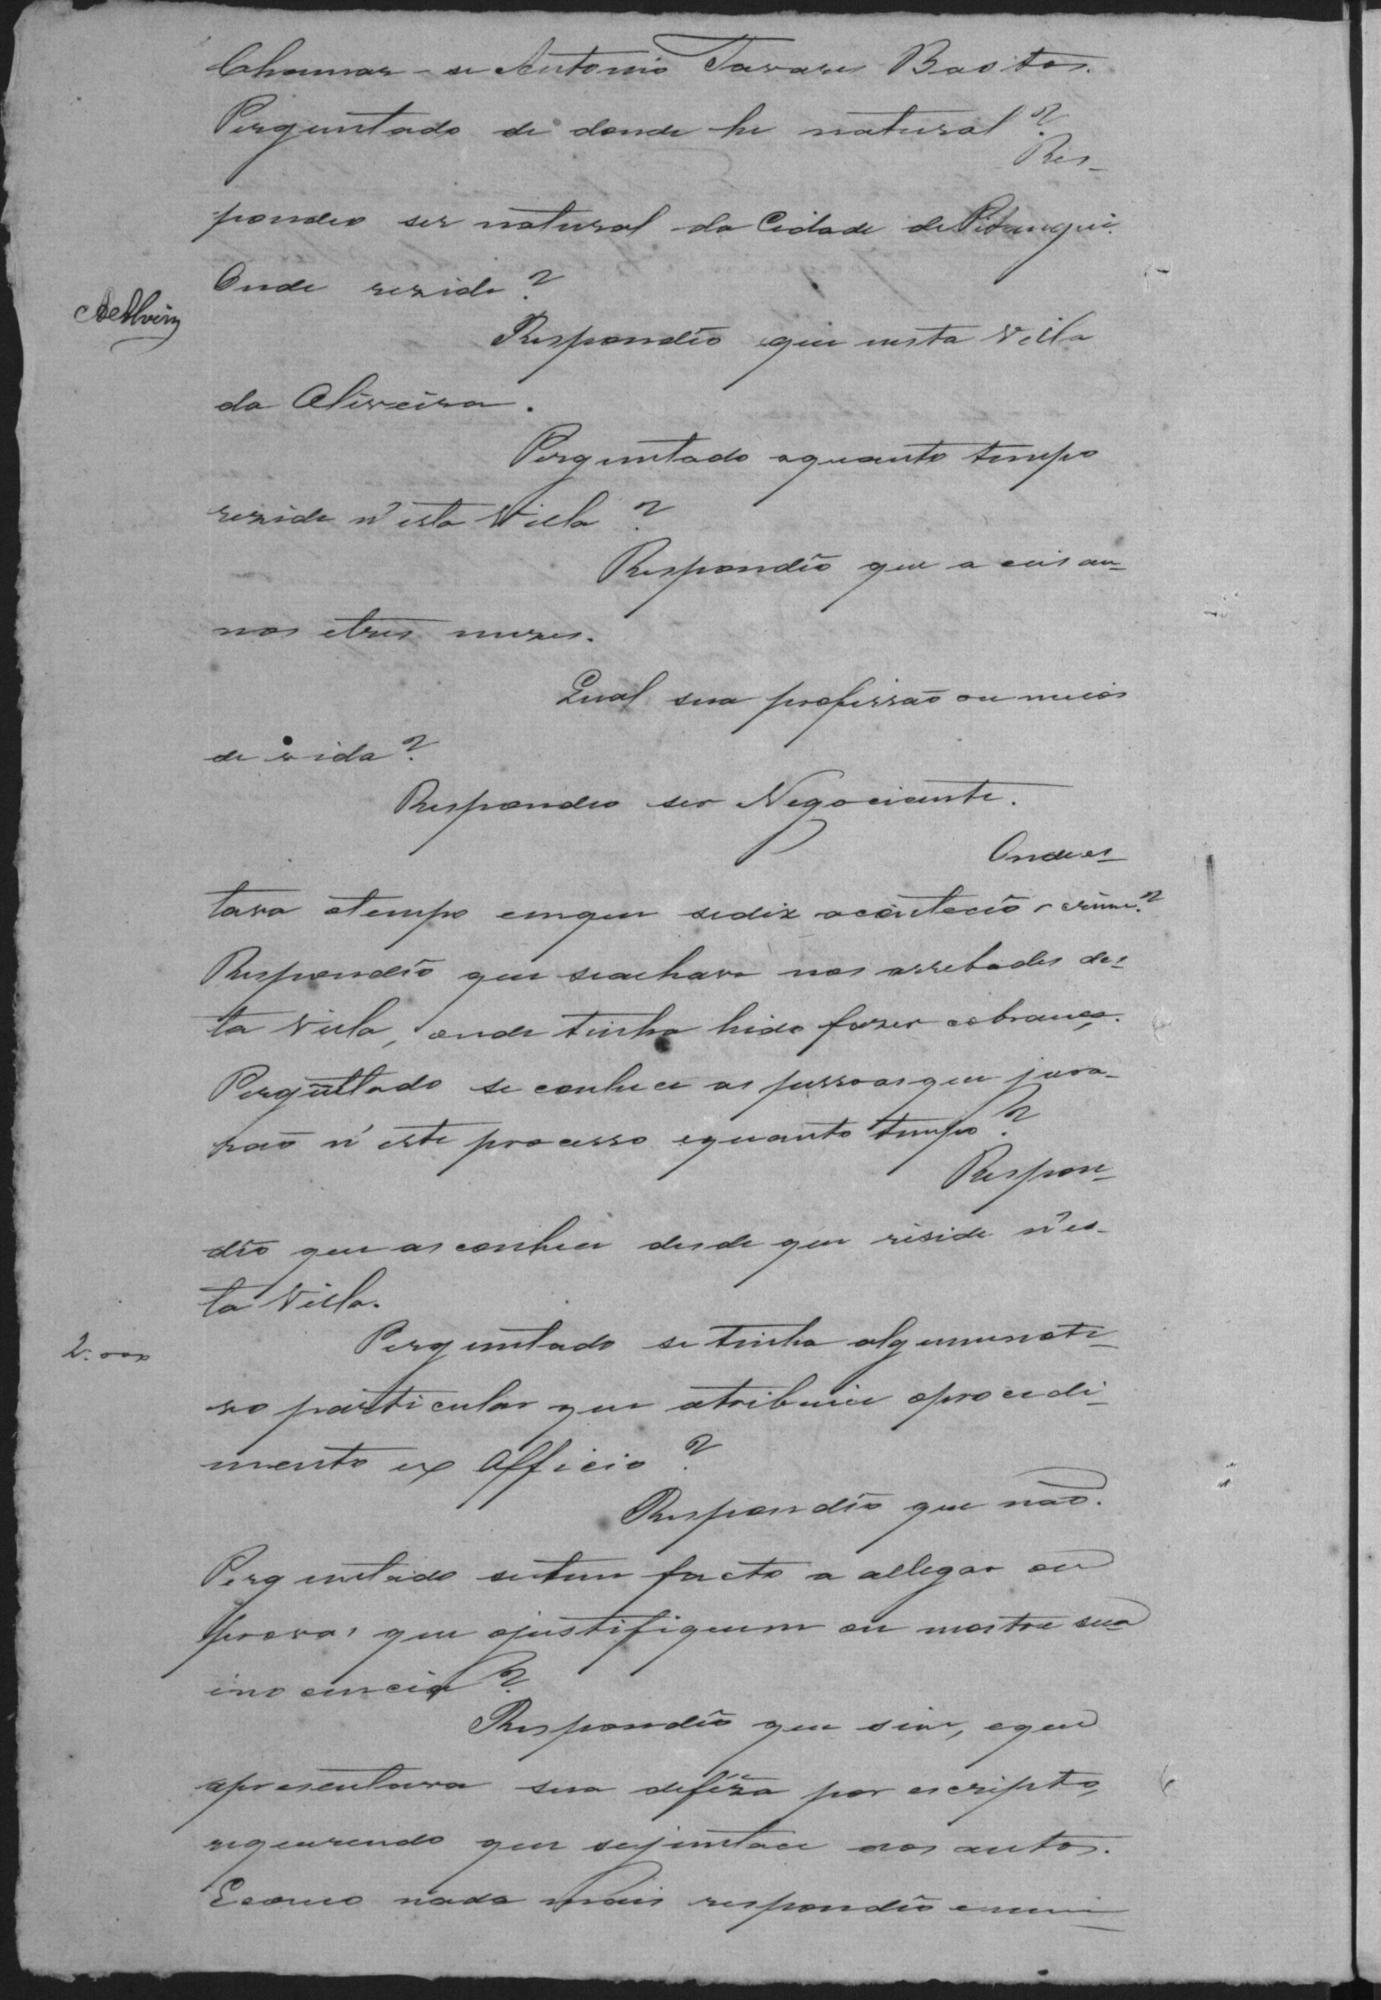 Chamar-se Antonio Tavares Bastos.
Perguntado de donde he natural?
Res-
pondeo ser natural da Cidade de Pitangui.
Onde rezide?
Respondêo que nesta Villa
da Oliveira.
Perguntado aquanto tempo
rezide n'esta Villa?
Respondêo que a seis an-
nos etres mezes.
Qual sua profissaõ ou meios
de vida?
Respondeo ser Negociante.
Onde es-
tava otempo emque sediz aconteceo o crime?
Respondêo que seachava nos arrebades des-
ta Villa, onde tinha hido fazer cobrança.
Pergũtado se conhece as pessoas que jura-
raõ n'este processo equanto tempo?
Respon-
dêo que as conhece desde que reside n'es-
ta Villa.
2.000
Perguntado se tinha algum moti-
vo particular que atribuia oprocedi-
mento ex Officio?
Respondêo que naõ.
Perguntado setem facto a allegar ou
provas que ojustifiquem ou mostre sua
inocencia?
Respondêo que sim, eque
apresentava sua defêza por escripto,
requerendo que sejuntace aos autos.
Ecomo nada mais respondêo